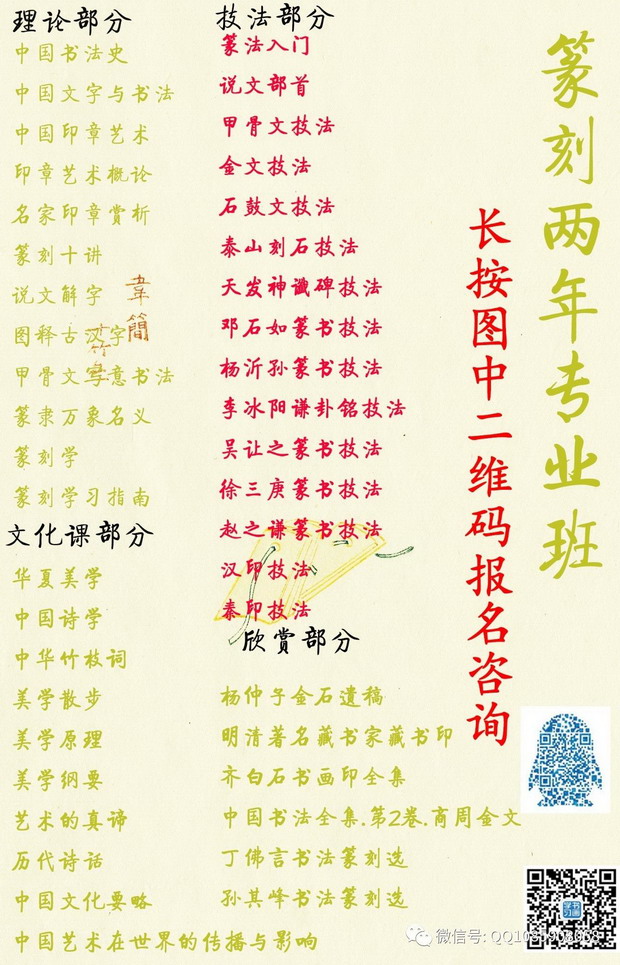 篆刻两年专业班
长按图中二维码报名咨询
理论部分
中国书法史
中国文字与书法
中国印章艺术
印章艺术概论
名家印章赏析
篆刻十讲
说文解字
图释古汉字
甲骨文写意书法
篆隶万象名义
篆刻学
篆刻学习指南
文化课部分
华夏美学
中国诗学
中华竹枝词
美学散步
美学原理
美学纲要
艺术的真谛
历代诗话
中国文化要略
中国艺术在世界的传播与影响
技法部分
篆法入门
说文部首
甲骨文技法
金文技法
石鼓文技法
泰山刻石技法
天发神谶碑技法
邓石如篆书技法
杨沂孙篆书技法
李冰阳谦卦铭技法
吴让之篆书技法
徐三庚篆书技法
赵之谦篆书技法
汉印技法
泰印技法
欣赏部分
杨仲子金石遗稿
明清著名藏书家藏书印
齐白石书画印全集
中国书法全集.第2卷.商周金文
丁佛言书法篆刻选
孙其峰书法篆刻选
韋簡
微信号: